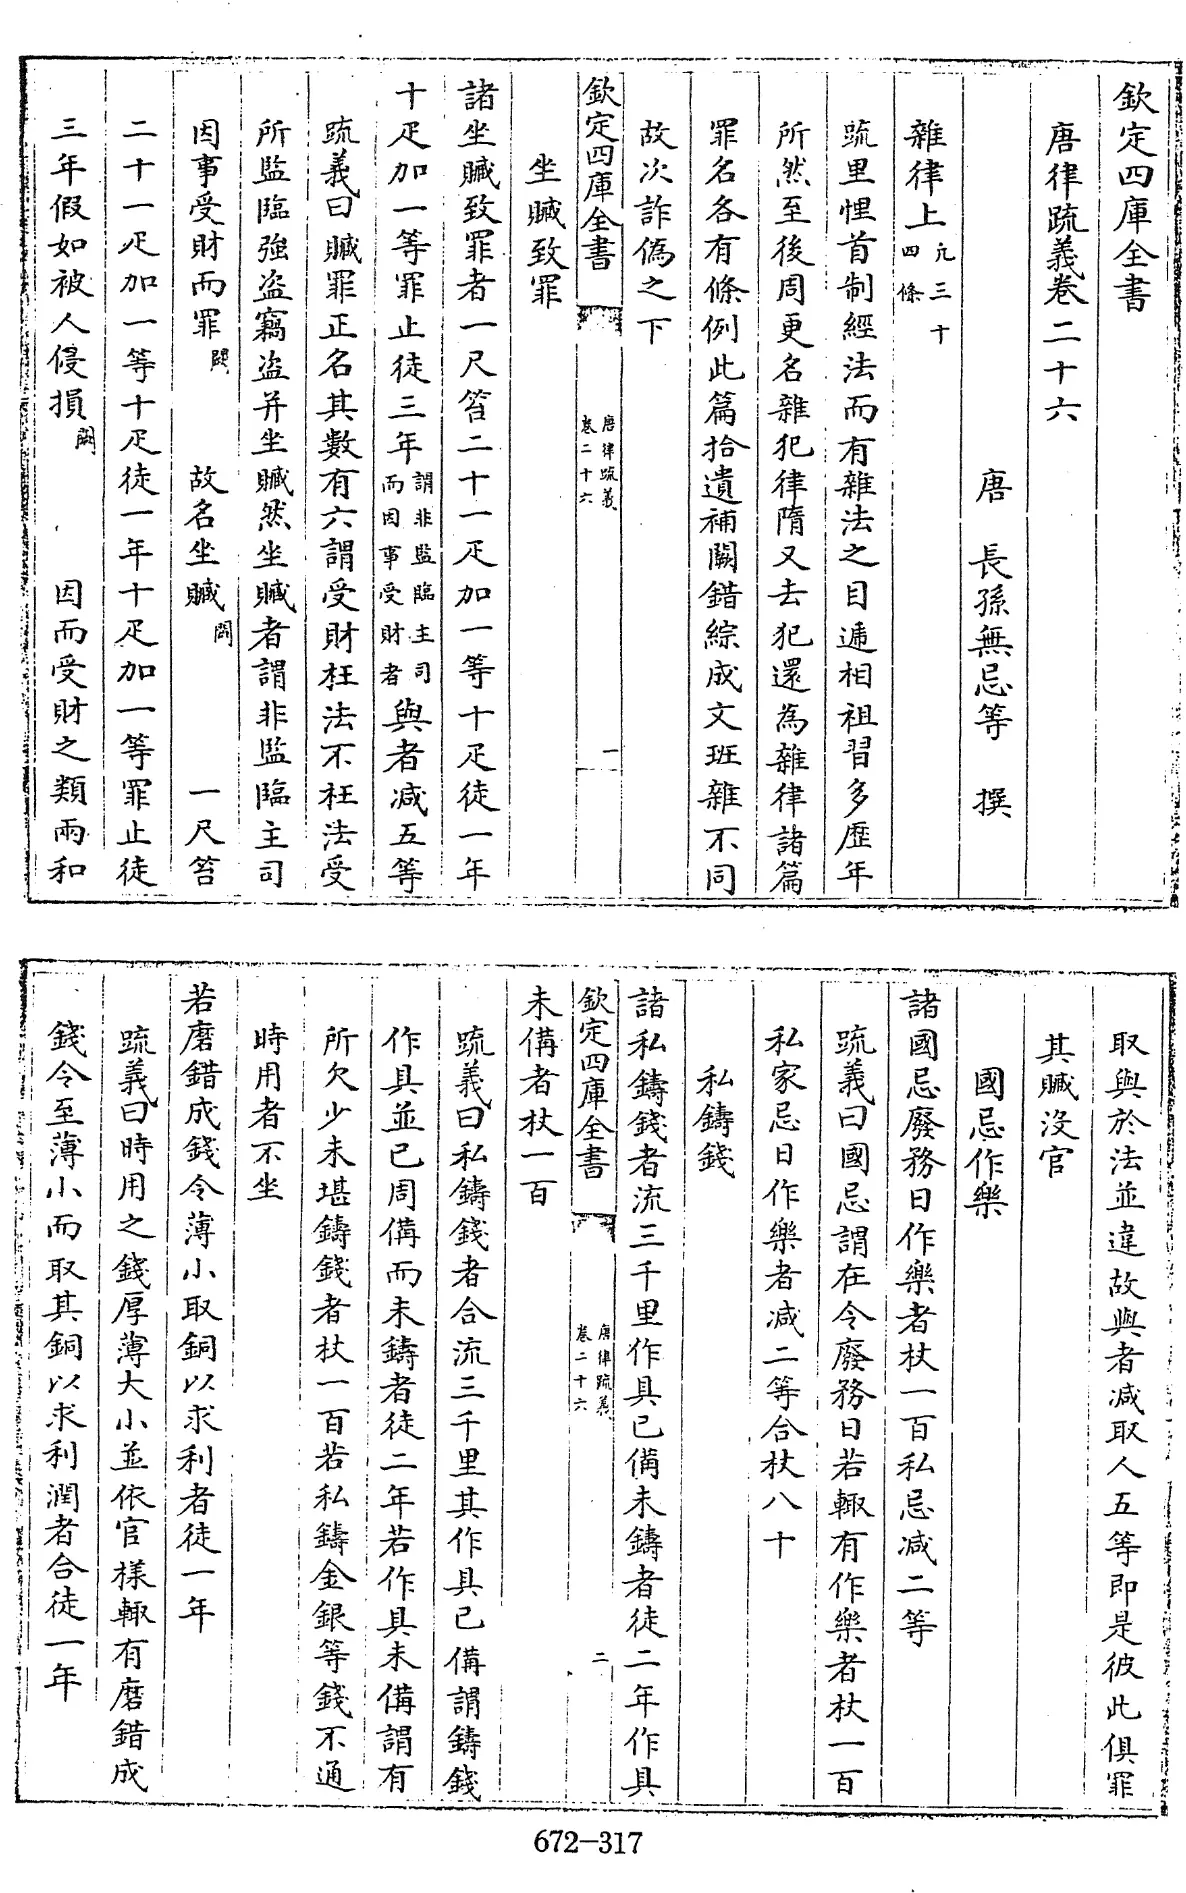 欽定四庫全書
唐律疏義卷二十六
唐 長孫無忌等 撰
雜律上凡三十四條
疏里悝首制經法而有雜法之目遞相祖習多歷年
所然至後周更名雜犯律隋又去犯還為雜律諸篇
罪名各有條例此篇拾遺補闕錯綜成文班雜不同
故次詐偽之下
欽定四庫全書 唐律疏義卷二十六 一
坐贓致罪
諸坐贓致罪者一尺笞二十一疋加一等十疋徒一年
十疋加一等罪止徒三年謂非監臨主司而因事受財者與者減五等
疏義曰贓罪正名其數有六謂受財枉法不枉法受
所監臨強盜竊盜并坐贓然坐贓者謂非監臨主司
因事受財而罪闕 故名坐贓闕 一尺笞
二十一疋加一等十疋徒一年十疋加一等罪止徒
三年假如被人侵損闕 因而受財之類兩和
取與於法並違故與者減取人五等即是彼此俱罪
其贓沒官
國忌作樂
諸國忌廢務日作樂者杖一百私忌減二等
疏義曰國忌謂在令廢務日若輙有作樂者杖一百
私家忌日作樂者減二等合杖八十
私鑄錢
諸私鑄錢者流三千里作具已備未鑄者徒二年作具
欽定四庫全書 唐律疏義卷二十六 二
未備者杖一百
疏義曰私鑄錢者合流三千里其作具已備謂鑄錢
作具並已周備而未鑄者徒二年若作具未備謂有
所欠少未堪鑄錢者杖一百若私鑄金銀等錢不通
時用者不坐
若磨錯成錢令薄小取銅以求利者徒一年
疏義曰時用之錢厚薄大小並依官樣輙有磨錯成
錢令至薄小而取其銅以求利潤者合徒一年
672-317